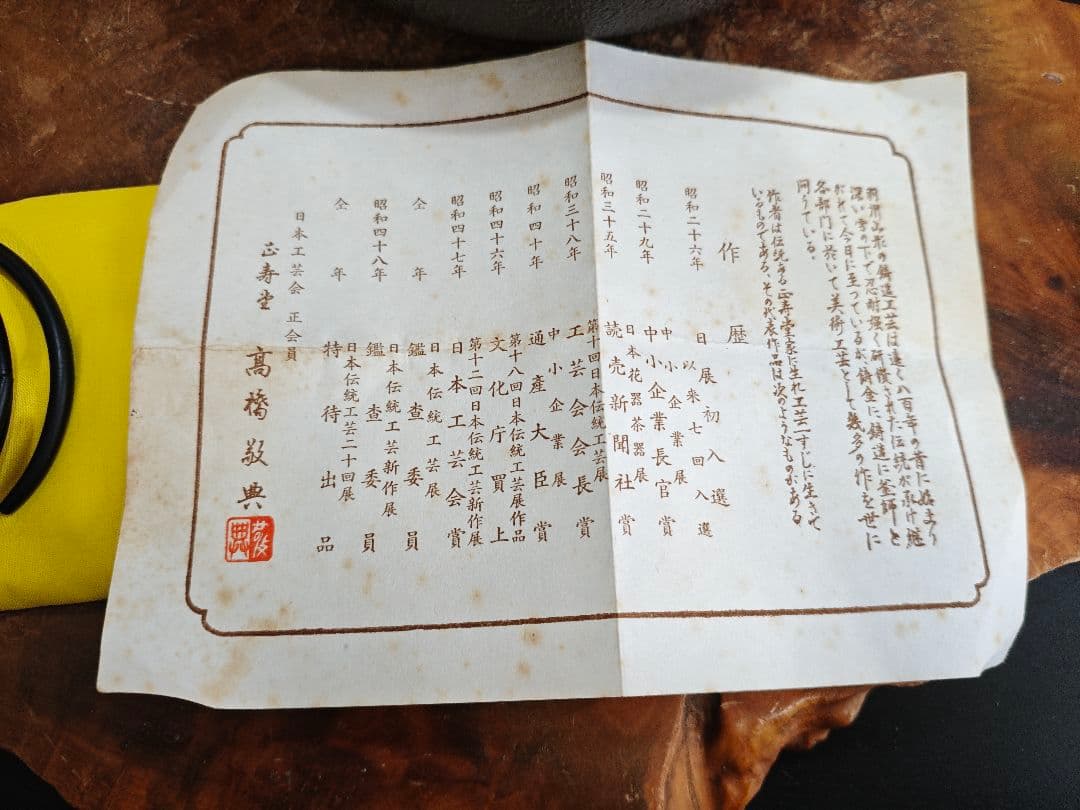 羽州山形の鋳造工芸は遠く八百年の昔に始まり
深い雪の下で忍耐強く研鑽された伝統が承け継
がれて今日に至つているが鋳金に鋳造に釜師と
各部門に於いて美術工芸として幾多の作を世に
問うている。
作者は伝統ある正寿堂家に生れ工芸一すじに生きて
いるものである。その代表作品は次のようなものがある。
作歴
昭和二十六年 日展初入選
以来七回入選
昭和二十九年 中小企業展
中小企業長官賞
昭和三十五年 日本花器茶器展
読売新聞社賞
昭和三十八年 第十回日本伝統工芸展
工芸会会長賞
昭和四十年 中小企業展
通産大臣賞
昭和四十六年 第十八回日本伝統工芸展作品
文化庁買上
昭和四十七年 第十二回日本伝統工芸新作展
日本工芸会賞
仝年 日本伝統工芸展
鑑査委員
昭和四十八年 日本伝統工芸新作展
鑑査委員
仝年 日本伝統工芸二十回展
特待出品
日本工芸会正会員
正寿堂 高橋敬典
敬典